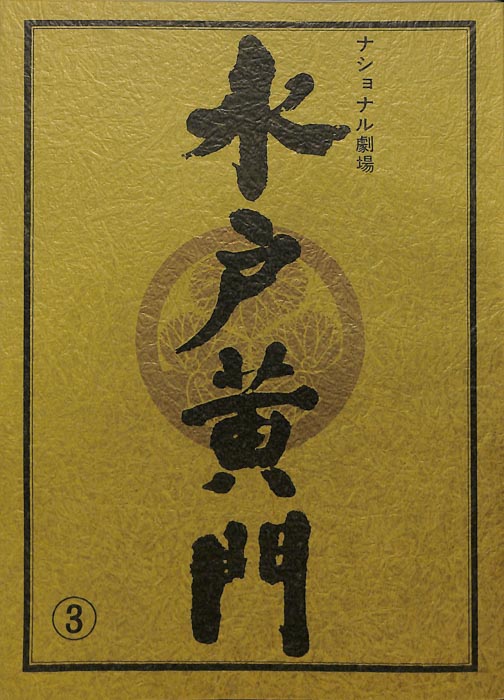 ナショナル劇場
水戸黄門
③